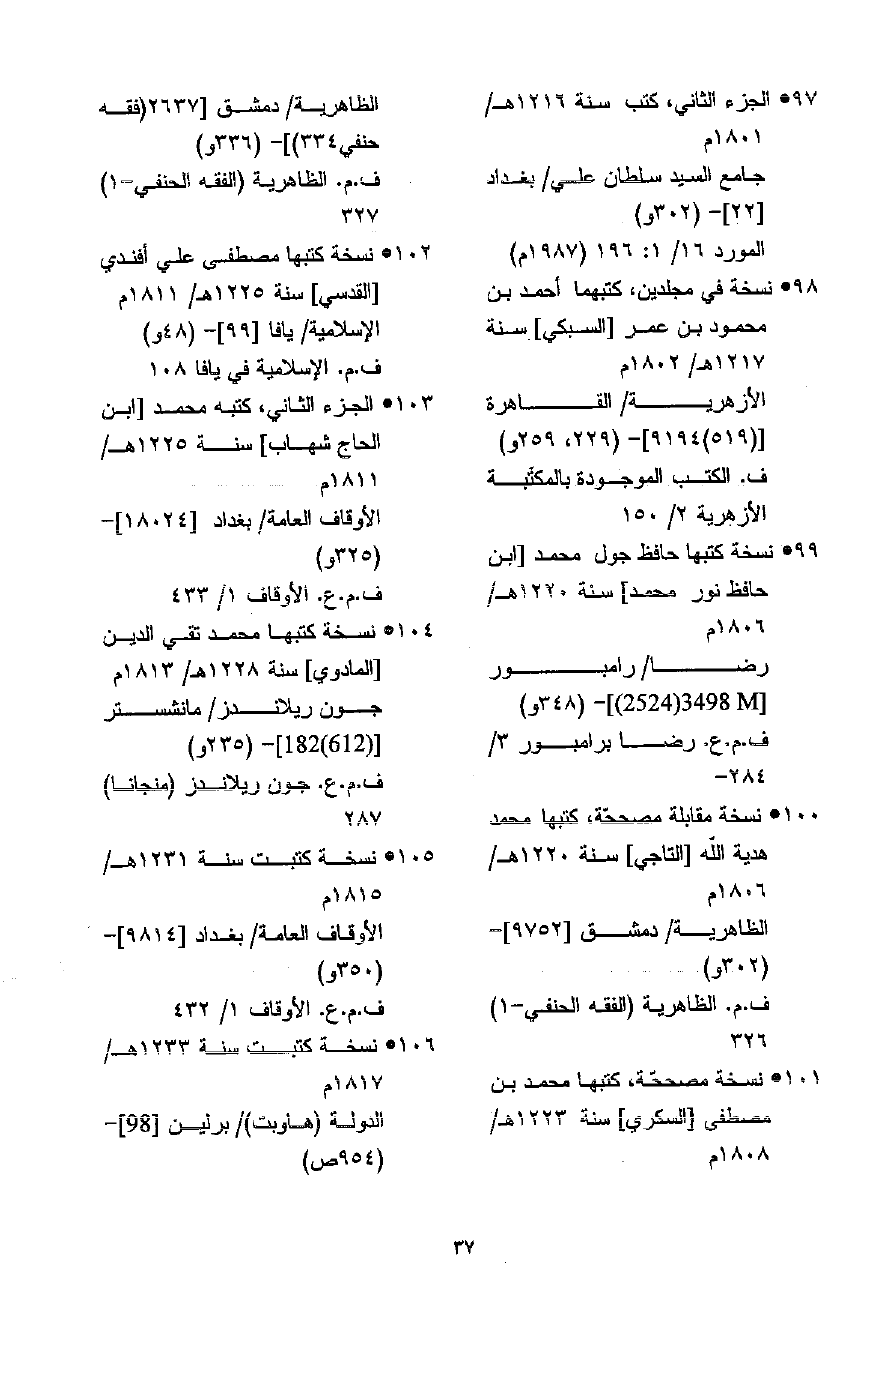 ٩٧• الجزء الثاني، كتب سنة ١٢١٦هـ/
١٨٠١م
جامع السيد سلطان علي/ بغداد
[٢٢]- (٣٠٢و)
المورد ١٦/ ١: ١٩٦ (١٩٨٧م)
٩٨• نسخة في مجلدين، كتبهما أحمد بن
محمود بن عمر [السبكي] سنة
١٢١٧هـ/ ١٨٠٢م
الأزهرية/ القاهرة
[(٥١٩)٩١٩٤]- (٢٢٩، ٢٥٩و)
ف. الكتب الموجودة بالمكتبة
الأزهرية ٢/ ١٥٠
٩٩• نسخة كتبها حافظ جول محمد [ابن
حافظ نور محمد] سنة ١٢٢٠هـ/
١٨٠٦م
رضا/ رامبور
[3498 M(2524)]- (٣٤٨و)
ف.م.ع. رضا برامبور ٣/
٢٨٤-
١٠٠• نسخة مقابلة مصححّة، كتبها محمد
هدية الله [التاجي] سنة ١٢٢٠هـ/
١٨٠٦م
الظاهرية/ دمشق [٩٧٥٢]-
(٣٠٢و)
ف.م. الظاهرية (الفقه الحنفي-١)
٣٢٦
١٠١• نسخة مصححّة، كتبها محمد بن
مصطفى [السكري] سنة ١٢٢٣هـ/
١٨٠٨م
الظاهرية/ دمشق [٢٦٣٧(فقه
حنفي٣٣٤)]- (٣٣٦و)
ف.م. الظاهرية (الفقه الحنفي-١)
٣٢٧
١٠٢• نسخة كتبها مصطفى علي أفندي
[القدسي] سنة ١٢٢٥هـ/ ١٨١١م
الإسلامية/ يافا [٩٩]- (٤٨و)
ف.م. الإسلامية في يافا ١٠٨
١٠٣• الجزء الثاني، كتبه محمد [ابن
الحاج شهاب] سنة ١٢٢٥هـ/
١٨١١م
الأوقاف العامة/ بغداد [١٨٠٢٤]-
(٣٢٥و)
ف.م.ع. الأوقاف ١/ ٤٣٣
١٠٤• نسخة كتبها محمد تقي الدين
[المادوي] سنة ١٢٢٨هـ/ ١٨١٣م
جون ريلاندز/ مانشستر
[182(612)]- (٢٣٥و)
ف.م.ع. جون ريلاندز (منجانا)
٢٨٧
١٠٥• نسخة كتبت سنة ١٢٣١هـ/
١٨١٥م
الأوقاف العامة/ بغداد [٩٨١٤]-
(٣٥٠و)
ف.م.ع. الأوقاف ١/ ٤٣٢
١٠٦• نسخة كتبت سنة ١٢٣٣هـ/
١٨١٧م
الدولة (هاوبت)/ برلين [98]-
(٩٥٤ص)
٣٧